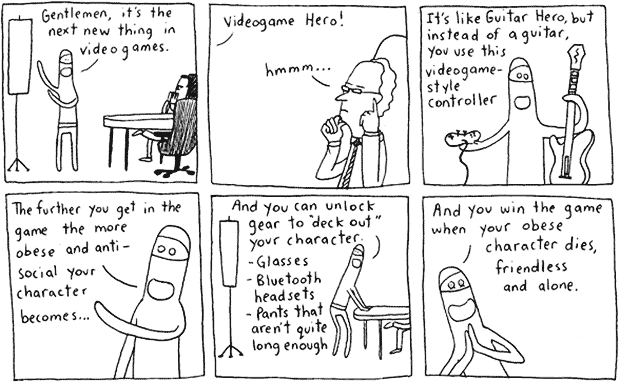 Gentlemen, it's the
next new thing in
videogames.
Videogame Hero!
hmmm...
It's like Guitar Hero, but
instead of a guitar,
you use this
videogame-
style
controller
The further you get in the
game the more
obese and anti-
social your
character
becomes...
And you can unlock
gear to "deck out"
your character.
- Glasses
- Bluetooth
headsets
- Pants that
aren't quite
long enough
And you win the game
when your obese
character dies,
friendless
and alone.